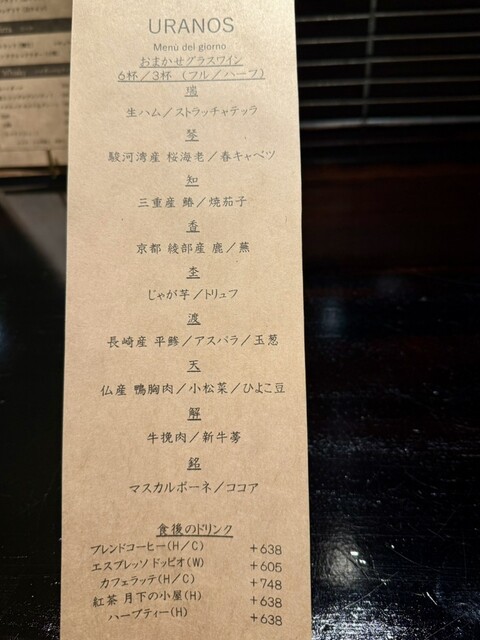 URANOS
Menù del giorno
おまかせグラスワイン
6杯／3杯 (フル／ハーフ)
瑞
生ハム／ストラッチャテッラ
琴
駿河湾産 桜海老／春キャベツ
知
三重産 鰆／焼茄子
香
京都 綾部産 鹿／蕪
杢
じゃが芋／トリュフ
渡
長崎産 平鯵／アスパラ／玉葱
天
仏産 鴨胸肉／小松菜／ひよこ豆
解
牛挽肉／新牛蒡
銘
マスカルポーネ／ココア
食後のドリンク
ブレンドコーヒー(H／C) +638
エスプレッソ ドッピオ(W) +605
カフェラッテ(H／C) +748
紅茶 月下の小屋(H) +638
ハーブティー(H) +638